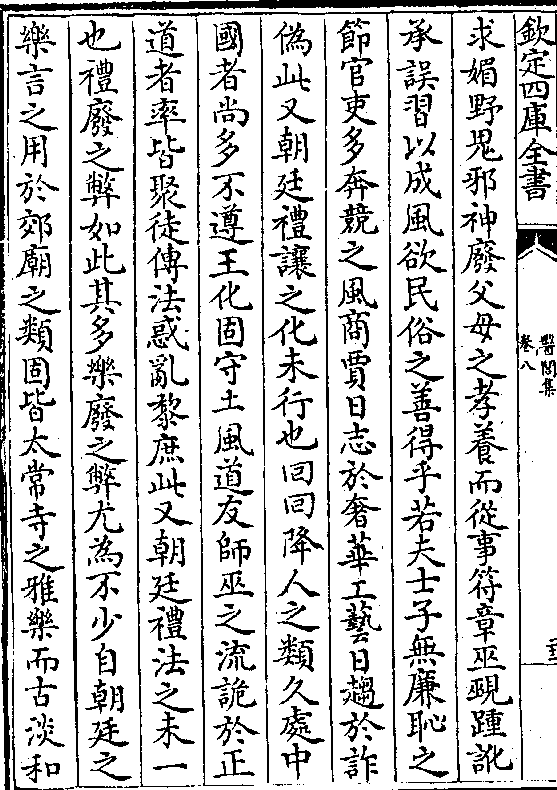 欽定四庫全書
醫閭集
卷八
二十三
求媚野鬼邪神廢父母之孝養而從事符章巫覡踵訛
承誤習以成風欲民俗之善得乎若夫士子無廉恥之
節官吏多奔競之風商賈日志於奢華工藝日趨於詐
偽此又朝廷禮讓之化未行也回回降人之類久處中
國者尚多不遵王化固守土風道友師巫之流詭於正
道者率皆聚徒傳法惑亂黎庶此又朝廷禮法之未一
也禮廢之弊如此其多樂廢之弊尤為不少自朝廷之
樂言之用於郊廟之類固皆太常寺之雅樂而古淡和